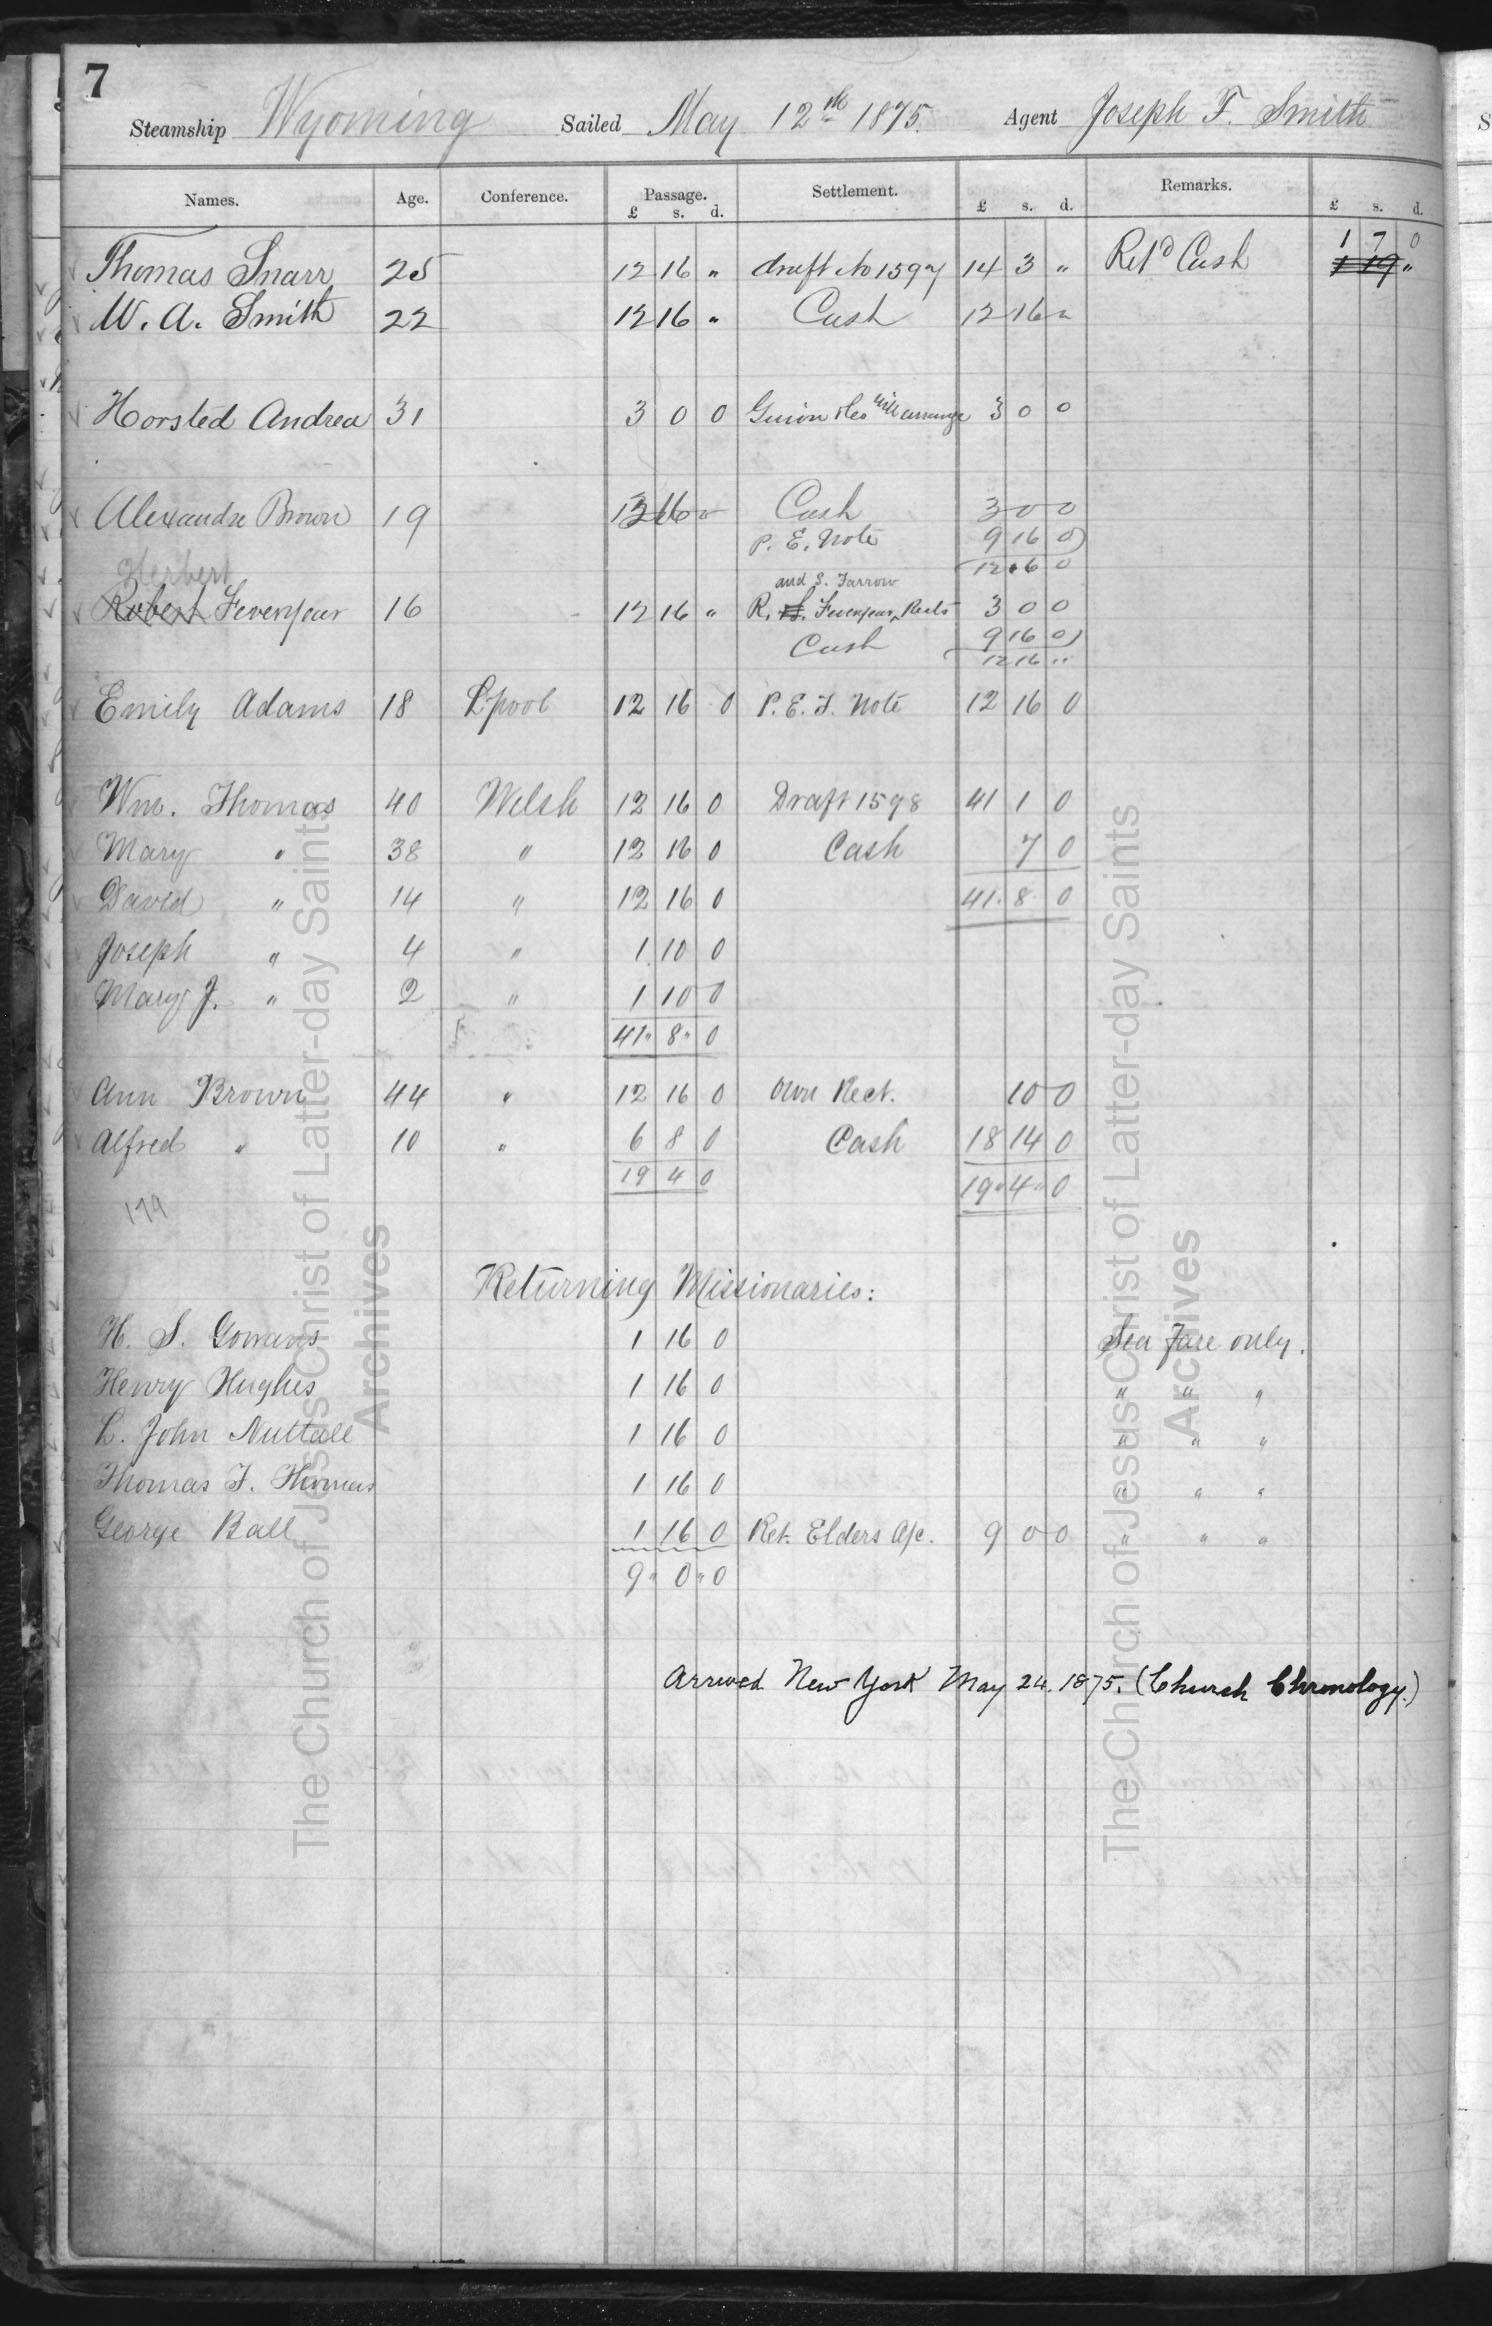 7
Steamship Wyoming Sailed May 12th 1875. Agent Joseph F. Smith
Names. Age. Conference. Passage. Settlement. Remarks.
£ s. d. £ s. d. £ s. d.
Thomas Snarr 25 12 16 " draft No 1597 14 3 " Retd Cash 1 7 0
1 19 "
W. A. Smith 22 12 16 " Cash 12 16 "
Horsted Andrea 31 3 0 0 Guion & Co will arrange 3 0 0
Alexandre Brown 19 12 16 0 Cash 3 0 0
P. E. Note 9 16 0
12 16 0
Herbert and S. Farrow
Robert Fevenyear 16 12 16 " R. Fevenyear Rects 3 0 0
Cash 9 16 0
12 16 "
Emily Adams 18 Lpool 12 16 0 P. E. F. Note 12 16 0
Wm. Thomas 40 Welsh 12 16 0 Draft 1598 41 1 0
Mary " 38 " 12 16 0 Cash 7 0
David " 14 " 12 16 0 41. 8. 0
Joseph " 4 " 1 10 0
Mary J. " 2 " 1 10 0
41" 8" 0
Ann Brown 44 " 12 16 0 Own Rect. 10 0
Alfred " 10 " 6 8 0 Cash 18 14 0
19 4 0 19" 4" 0
179
Returning Missionaries:
H. S. Gowans 1 16 0 Sea Fare only.
Henry Hughes 1 16 0 " " "
L. John Nuttall 1 16 0 " " "
Thomas F. Thomas 1 16 0 " " "
George Ball 1 16 0 Ret. Elders A/c. 9 0 0 " " "
9" 0" 0
Arrived New York May 24. 1875. (Church Chronology.)
The Church of Jesus Christ of Latter-day Saints
Archives
The Church of Jesus Christ of Latter-day Saints
Archives
S